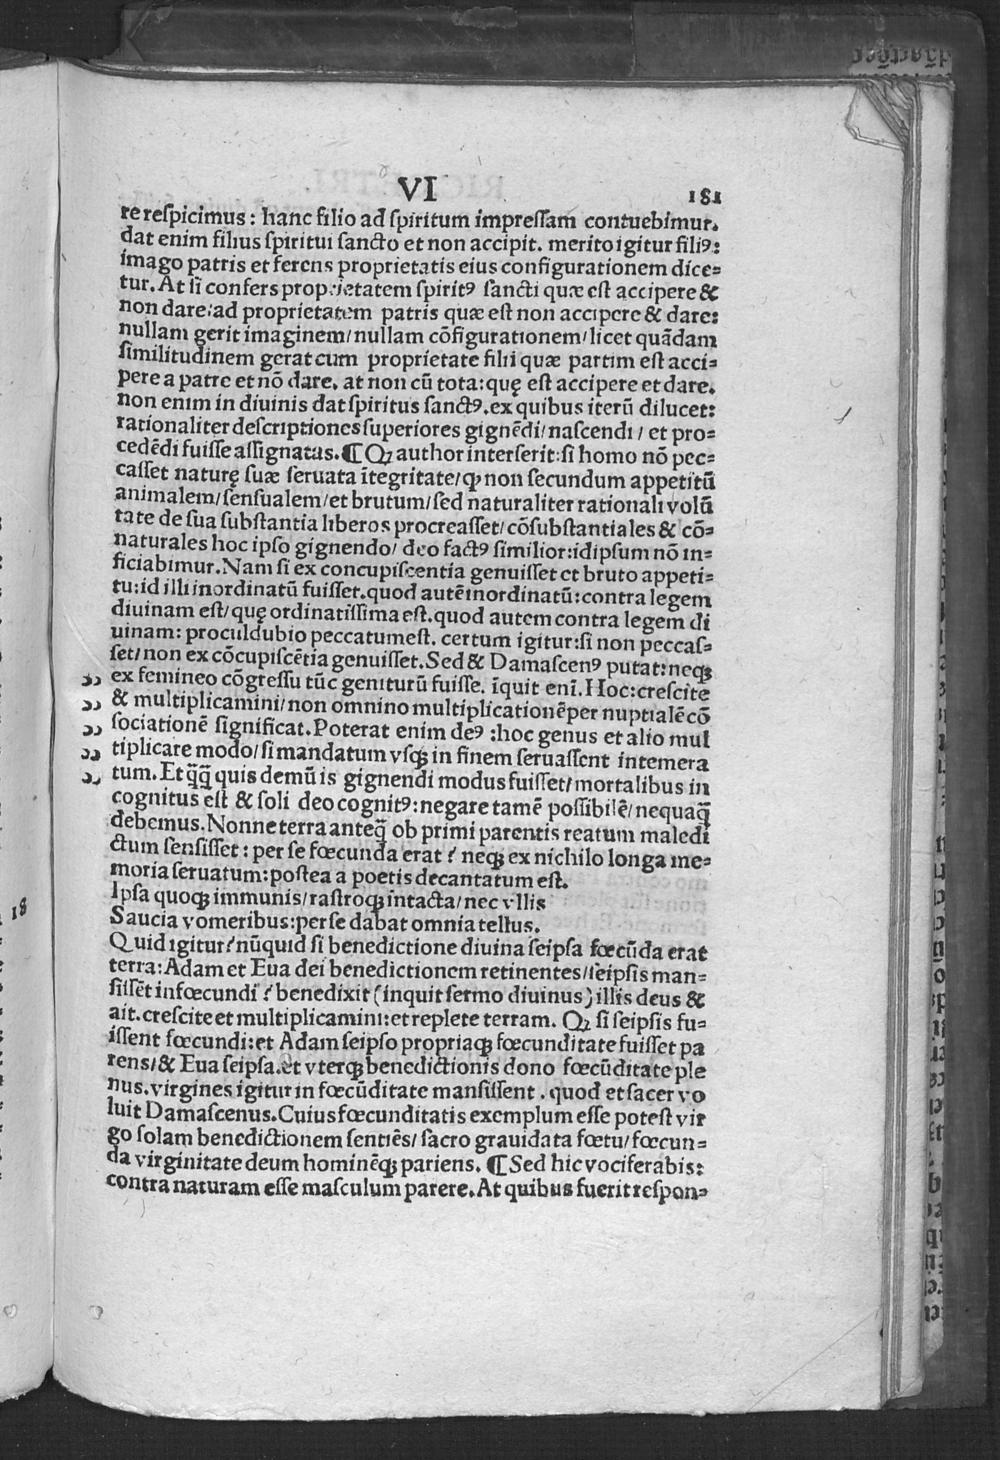 VI 181
re respicimus: hanc filio ad spiritum impressam contuebimur.
dat enim filius spiritui sancto et non accipit. merito igitur filiꝰ:
imago patris et ferens proprietatis eius configurationem dice⸗
tur. At si confers proprietatem spiritꝰ sancti quæ est accipere &
non dare: ad proprietatem patris quæ est non accipere & dare:
nullam gerit imaginem/ nullam cōfigurationem/ licet quādam
similitudinem gerat cum proprietate filii quæ partim est acci⸗
pere a patre et nō dare. at non cū tota: quę est accipere et dare.
non enim in diuinis dat spiritus sanctꝰ. ex quibus iterū dilucet:
rationaliter descriptiones superiores gignēdi/ nascendi/ et pro⸗
cedēdi fuisse assignatas. ¶ Qꝫ author interserit: si homo nō pec⸗
casset naturę suæ seruata ītegritate/ ꝙ non secundum appetitū
animalem/ sensualem/ et brutum/ sed naturaliter rationali volū
tate de sua substantia liberos procreasset/ cōsubstantiales & cō⸗
naturales hoc ipso gignendo/ deo factꝰ similior: idipsum nō in⸗
ficiabimur. Nam si ex concupiscentia genuisset et bruto appeti⸗
tu: id illi inordinatū fuisset. quod autē inordinatū: contra legem
diuinam est/ quę ordinatissima est. quod autem contra legem di
uinam: proculdubio peccatum est. certum igitur: si non peccas⸗
set/ non ex cōcupiscētia genuisset. Sed & Damascenꝰ putat: neqꝫ
ex femineo cōgressu tūc geniturū fuisse. īquit enī. Hoc: crescite
& multiplicamini/ non omnino multiplicationē per nuptialē cō
sociationē significat. Poterat enim deꝰ: hoc genus et alio mul
tiplicare modo/ si mandatum vsqꝫ in finem seruassent intemera
tum. Et q̄q̄ quis demū is gignendi modus fuisset/ mortalibus in
cognitus est & soli deo cognitꝰ: negare tamē possibilē/ nequaq̄
debemus. Nonne terra anteq̄ ob primi parentis reatum maledi
ctum sensisset: per se fœcunda erat? neqꝫ ex nichilo longa me⸗
moria seruatum: postea a poetis decantatum est.
Ipsa quoqꝫ immunis/ rastroqꝫ intacta/ nec vllis
Saucia vomeribus: per se dabat omnia tellus.
Quid igitur? nūquid si benedictione diuina seipsa fœcūda erat
terra: Adam et Eua dei benedictionem retinentes/ seipsis man⸗
sissēt infœcundi? benedixit (inquit sermo diuinus) illis deus &
ait. crescite et multiplicamini: et replete terram. Qꝫ si seipsis fu⸗
issent fœcundi: et Adam seipso propriaqꝫ fœcunditate fuisset pa
rens/ & Eua seipsa. et vterqꝫ benedictionis dono fœcūditate ple
nus. virgines igitur in fœcūditate mansissent. quod et sacer vo
luit Damascenus. Cuius fœcunditatis exemplum esse potest vir
go solam benedictionem sentiēs/ sacro grauidata fœtu/ fœcun⸗
da virginitate deum hominēqꝫ pariens. ¶ Sed hic vociferabis:
contra naturam esse masculum parere. At quibus fuerit respon⸗